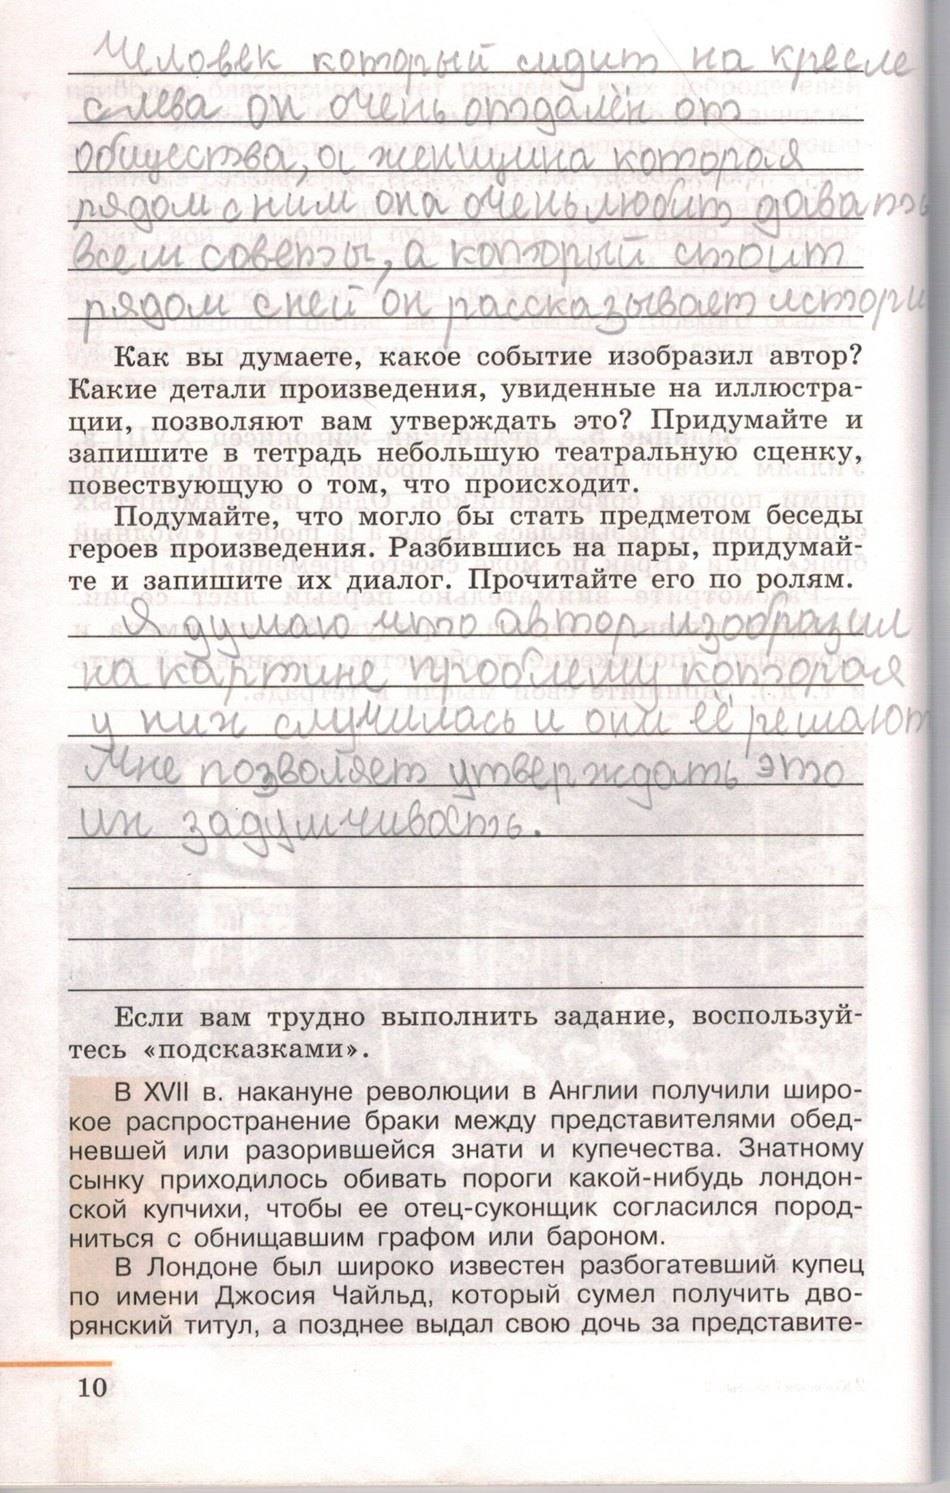 Человек который сидит на кресле
слева он очень отдалён от
общества, а женщина которая
рядом с ним она очень любит давать
всем советы, а который стоит
рядом с ней он рассказывает истори
Как вы думаете, какое событие изобразил автор?
Какие детали произведения, увиденные на иллюстра-
ции, позволяют вам утверждать это? Придумайте и
запишите в тетрадь небольшую театральную сценку,
повествующую о том, что происходит.
Подумайте, что могло бы стать предметом беседы
героев произведения. Разбившись на пары, придумай-
те и запишите их диалог. Прочитайте его по ролям.
Я думаю что автор изобразил
на картине проблему которая
у них случилась и они её решают
Мне позволяет утверждать это
их задумчивость.
Если вам трудно выполнить задание, воспользуй-
тесь «подсказками».
В XVII в. накануне революции в Англии получили широ-
кое распространение браки между представителями обед-
невшей или разорившейся знати и купечества. Знатному
сынку приходилось обивать пороги какой-нибудь лондон-
ской купчихи, чтобы ее отец-суконщик согласился пород-
ниться с обнищавшим графом или бароном.
В Лондоне был широко известен разбогатевший купец
по имени Джосия Чайльд, который сумел получить дво-
рянский титул, а позднее выдал свою дочь за представите-
10